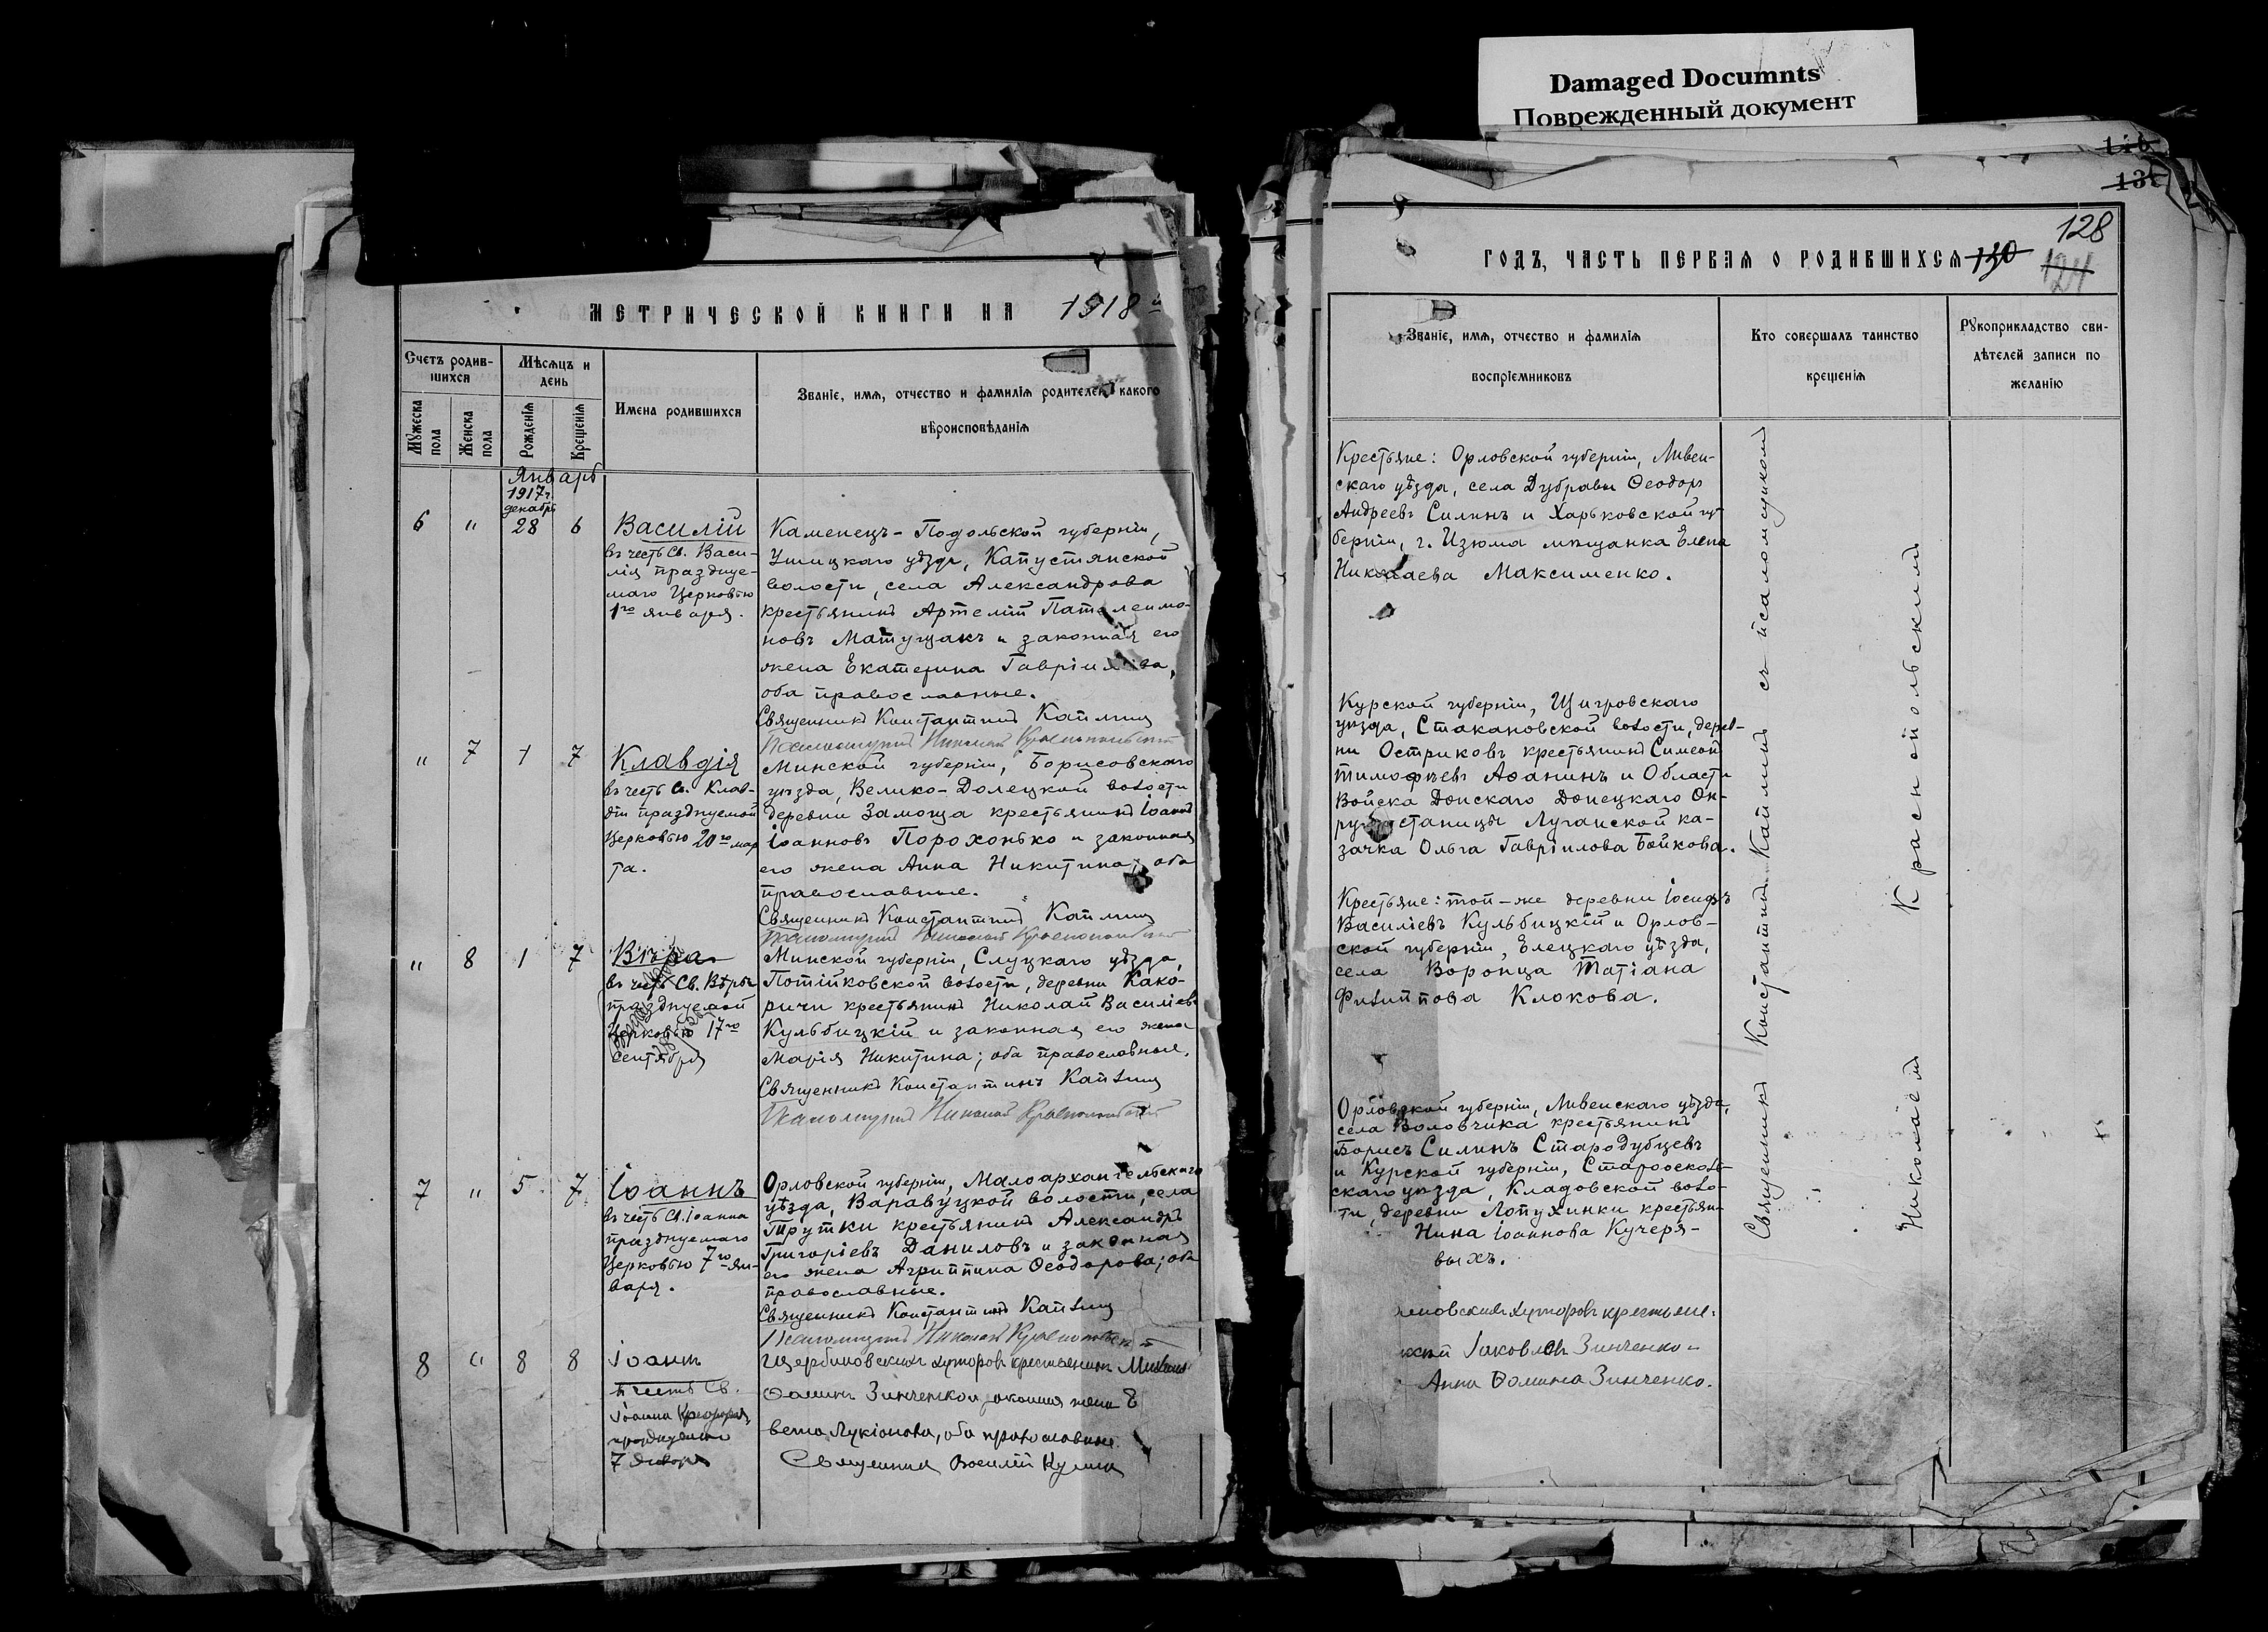 Damaged Documnts
Поврежденный документ
МЕТРИЧЕСКОЙ КНИГИ НА 1918й
Счетъ родив-
шихся
Мѣсяцъ и
день
Имена родившихся
Званіе, имя, отчество и фамилія родителей какого
вѣроисповѣданія
Мужеска
пола
Женска
пола
Рожденія
Крещенія
Январь
1917г.
декабрь
6 " 28 6
Василій
въ честь Св. Васи-
лія празднуе-
маго Церковью
1го января.
Каменецъ-Подольской губерніи,
Ушицкаго уѣзда, Капустянской
волости, села Александрова
крестьянинъ Артемій Пателеимо-
новъ Матущакъ и законная его
жена Екатерина Гавріилова,
оба православные.
Священникъ Константинъ
Псаломщикъ Николай Краснопольскій
" 7 1 7
Клавдія
въ честь Св. Клав-
діи празднуемой
Церковью 20го мар
та.
Минской губерніи, Борисовскаго
уѣзда, Велико-Долецкой волости
деревни Замоща крестьянинъ Іоаннъ
Іоанновъ Порохонько и законная
его жена Анна Никитина; оба
православные.
Священникъ Константинъ
Псаломщикъ Николай Краснопольскій
" 8 1 7
Вѣра
въ честь Св. Вѣры
празднуемой
Церковью 17го
сентября
Минской губерніи, Слуцкаго уѣзда,
Потійковской волости, деревни Како-
ричи крестьянинъ Николай Василіевъ
Кульбицкій и законная его жена
Марія Никитина; оба православные.
Священникъ Константинъ
Псаломщикъ Николай Краснопольскій
7 " 5 7
Іоаннъ
въ честь Св. Іоанна
празднуемаго
Церковью 7го ян-
варя.
Орловской губерніи, Малоархангельскаго
уѣзда, Варавуцкой волости, села
Трутки крестьянинъ Александръ
Григоріевъ Даниловъ и законная
его жена Агриппина Ѳеодорова; оба
православные.
Священникъ Константинъ
Псаломщикъ Николай Краснопольскій
8 " 8 8
Іоаннъ
въ честь Св.
Іоанна
7 Января
Щербиновскихъ хуторовъ крестьянинъ
Ѳоминъ Зинченко законная жена
Лукіонова, оба православные.
Священникъ Василій
146
13
128
ГОДЪ, ЧАСТЬ ПЕРВАЯ О РОДИВШИХСЯ 130 124
Званіе, имя, отчество и фамилія
воспріемниковъ
Кто совершалъ таинство
крещенія
Рукоприкладство сви-
дѣтелей записи по
желанію
Крестьяне: Орловской губерніи, Ливен-
скаго уѣзда, села Дубравы Ѳеодоръ
Андреевъ Силинъ и Харьковской гу-
берніи, г. Изюма мѣщанка Елена
Николаева Максименко.
Курской губерніи, Щигровскаго
уѣзда, Стакановской волости, дерев-
ни Остриковъ крестьянинъ Симеонъ
Тимоѳеевъ Аѳанинъ и Области
Войска Донскаго Донецкаго Ок-
руга станицы Луганской ка-
зачка Ольга Гавріилова Бойкова.
Крестьяне: той-же деревни Іосифъ
Василіевъ Кульбицкій и Орлов-
ской губерніи, Елецкаго уѣзда,
села Воронца Татіана
Филиппова Клокова.
Орловской губерніи, Ливенскаго уѣзда,
села Воловчика крестьянинъ
Борисъ Силинъ Стародубцевъ
и Курской губерніи, Старооскол-
скаго уѣзда, Кладовской воло-
ти, деревни Лопухинки крестьян-
Нина Іоаннова Кучеря-
выхъ.
хуторовъ крестьяне:
Іаковлевъ Зинченко и
Анна Ѳомина Зинченко.
Священникъ Константинъ съ псаломщикомъ
Николаемъ Краснопольскимъ